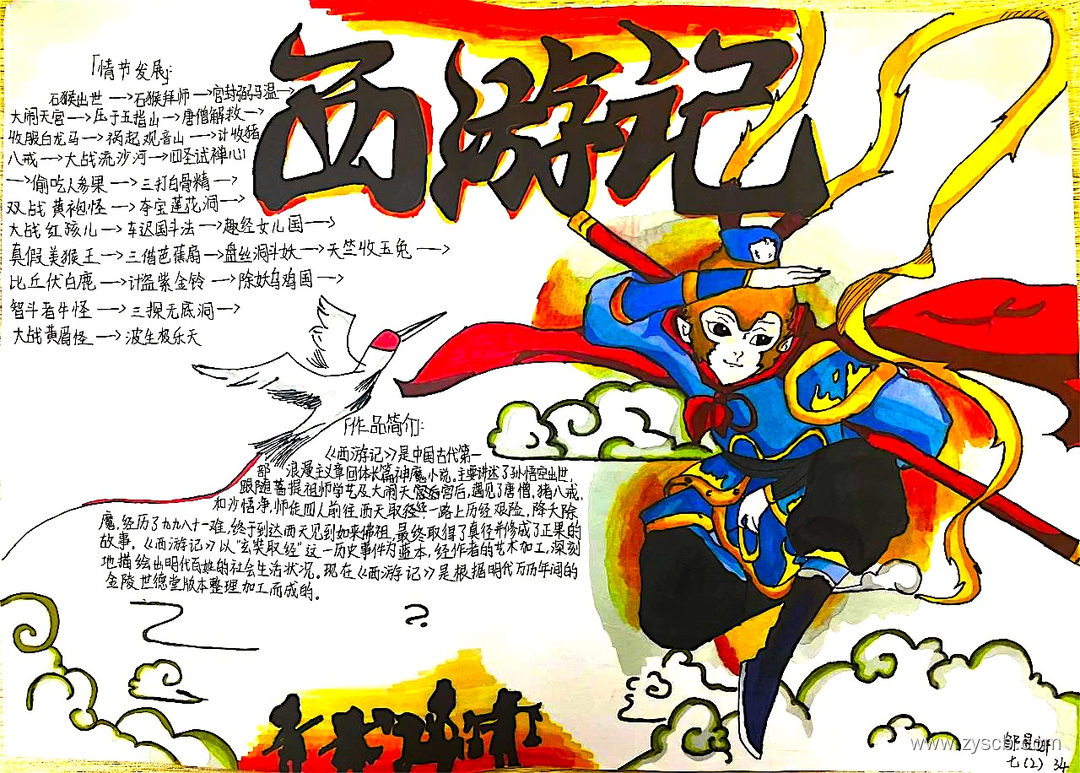 西游记
「情节发展:
石猴出世→石猴拜师→宫封弼马温→
大闹天宫→压于五指山→唐僧解救→
收服白龙马→祸起观音山→计收猪
八戒→大战流沙河→四圣试禅心
→偷吃人参果→三打白骨精→
双战黄袍怪→夺宝莲花洞→
大战红孩儿→车迟国斗法→趣经女儿国→
真假美猴王→三借芭蕉扇→盘丝洞斗妖→天竺收玉兔→
比丘伏白鹿→计盗紫金铃→除妖乌鸡国→
智斗青牛怪→三探无底洞→
大战黄眉怪→波生极乐天
「作品简介:
《西游记》是中国古代第一
部浪漫主义章回体长篇神魔小说。主要讲述了孙悟空出世,
跟随菩提祖师学艺及大闹天宫后,遇见了唐僧、猪八戒、
和沙悟净,师徒四人前往西天取经,一路上历经艰险,降妖除
魔,经历了九九八十一难,终于到达西天见到如来佛祖,最终取得了真经并修成了正果的
故事。《西游记》以"玄奘取经"这一历史事件为蓝本,经作者的艺术加工,深刻
地描绘出明代百姓的社会生活状况。现在《西游记》是根据明代万历年间的
金陵世德堂版本整理加工而成的。
七(2) 34